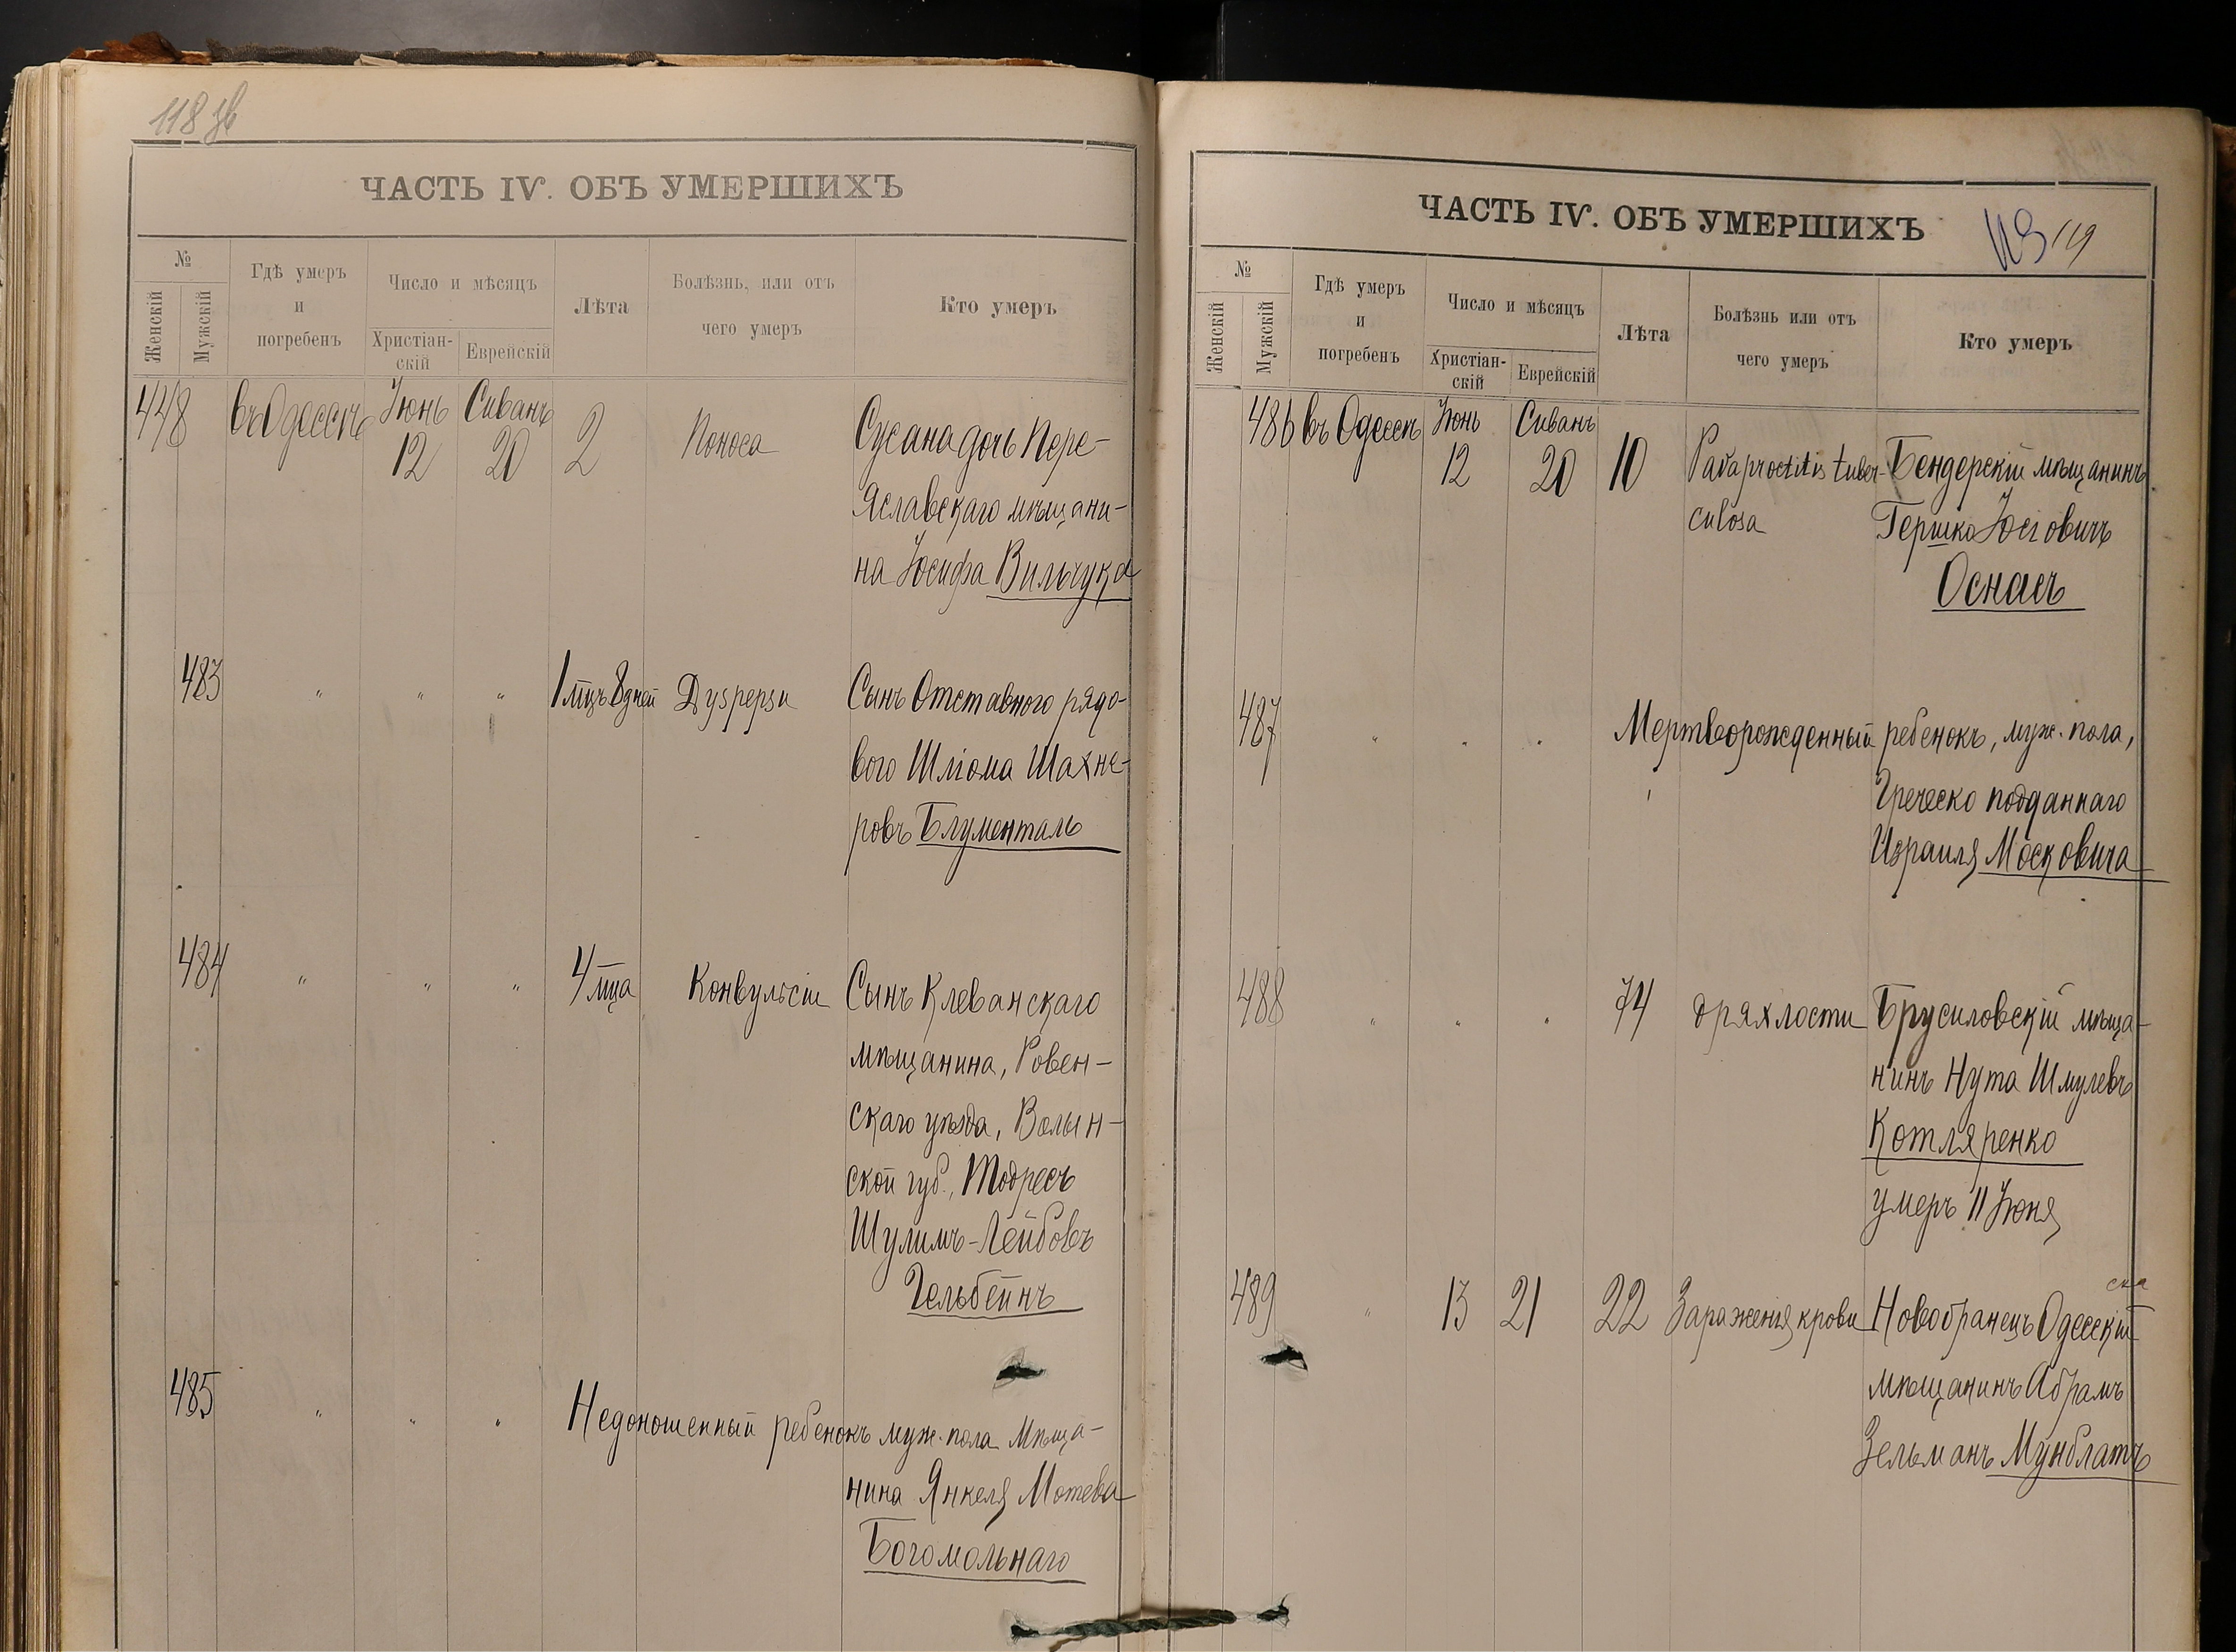 118 зв
ЧАСТЬ IV. ОБЪ УМЕРШИХЪ
№
Женскій
Мужскій
Гдѣ умеръ
и
погребенъ
Число и мѣсяцъ
Христіан-
скій
Еврейскій
Лѣта
Болѣзнь, или отъ
чего умеръ
Кто умеръ
448 въ Одессѣ Іюнь 12 Сиванъ 20 2 Поноса Сусана дочь Пере-
яславскаго мѣщани-
на Іосифа Вильчука
483 " " " 1 мцъ 8 дней Dyspepsii Сынъ Отставного рядо-
вого Шліома Шахне-
ровъ Блументаль
484 " " " 4 мца Конвульсіи Сынъ Клеванскаго
мѣщанина, Ровен-
скаго уѣзда, Волын-
ской губ., Тодресъ
Шулимъ-Лейбовъ
Гельбейнъ
485 " " " Недоношенный ребенокъ муж. пола мѣща-
нина Янкеля Мотева
Богомольнаго
119
ЧАСТЬ IV. ОБЪ УМЕРШИХЪ
№
Женскій
Мужскій
Гдѣ умеръ
и
погребенъ
Число и мѣсяцъ
Христіан-
скій
Еврейскій
Лѣта
Болѣзнь или отъ
чего умеръ
Кто умеръ
486 въ Одессѣ Іюнь 12 Сиванъ 20 10 Paraproctitis tuber- Бендерскій мѣщанинъ
culosa Гершко Іосіовичъ
Оснасъ
487 " " " Мертворожденный ребенокъ, муж. пола,
Греческо подданнаго
Израиля Московича
488 " " " 74 дряхлости Брусиловскій мѣща-
нинъ Нута Шмулевъ
Котляренко
умеръ 11 Іюня
489 " 13 21 22 Зараженія крови Новобранецъ Одесскій
мѣщанинъ Абрамъ
Зельманъ Мунблатъ